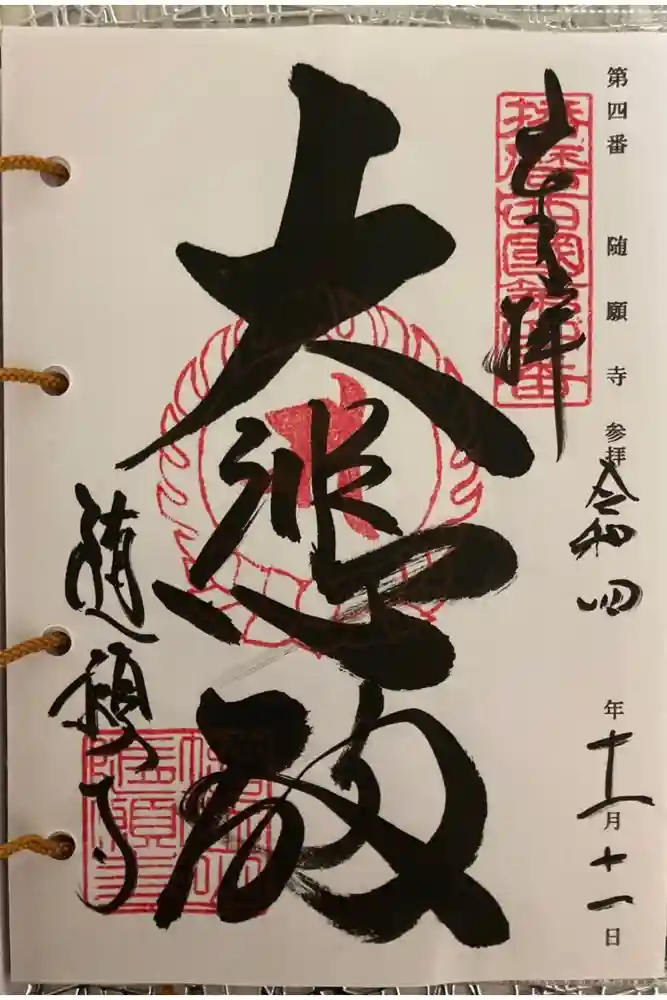 第四番 随願寺 参拝 令和四年十一月十一日
奉拝
播磨西國第四番
大悲殿
随願寺